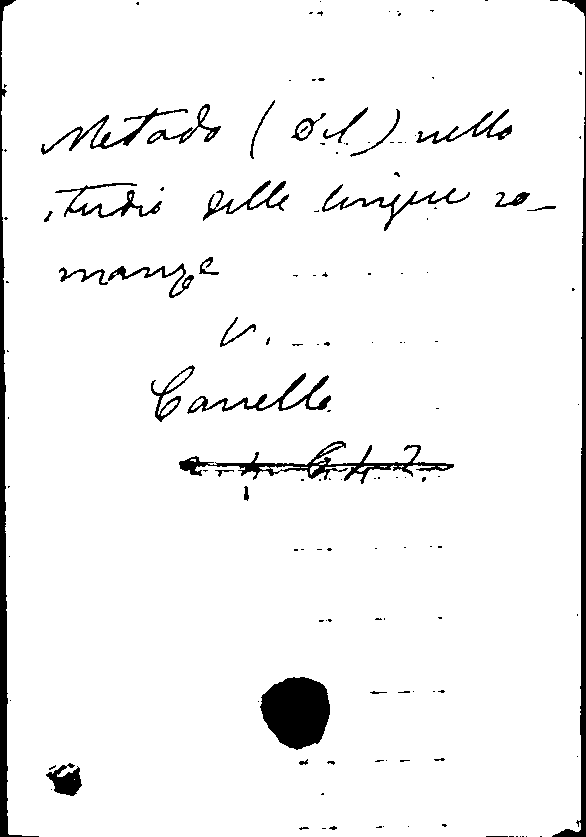 Metodo (Del) nello
studio delle lingue ro-
manze
V.
Canello